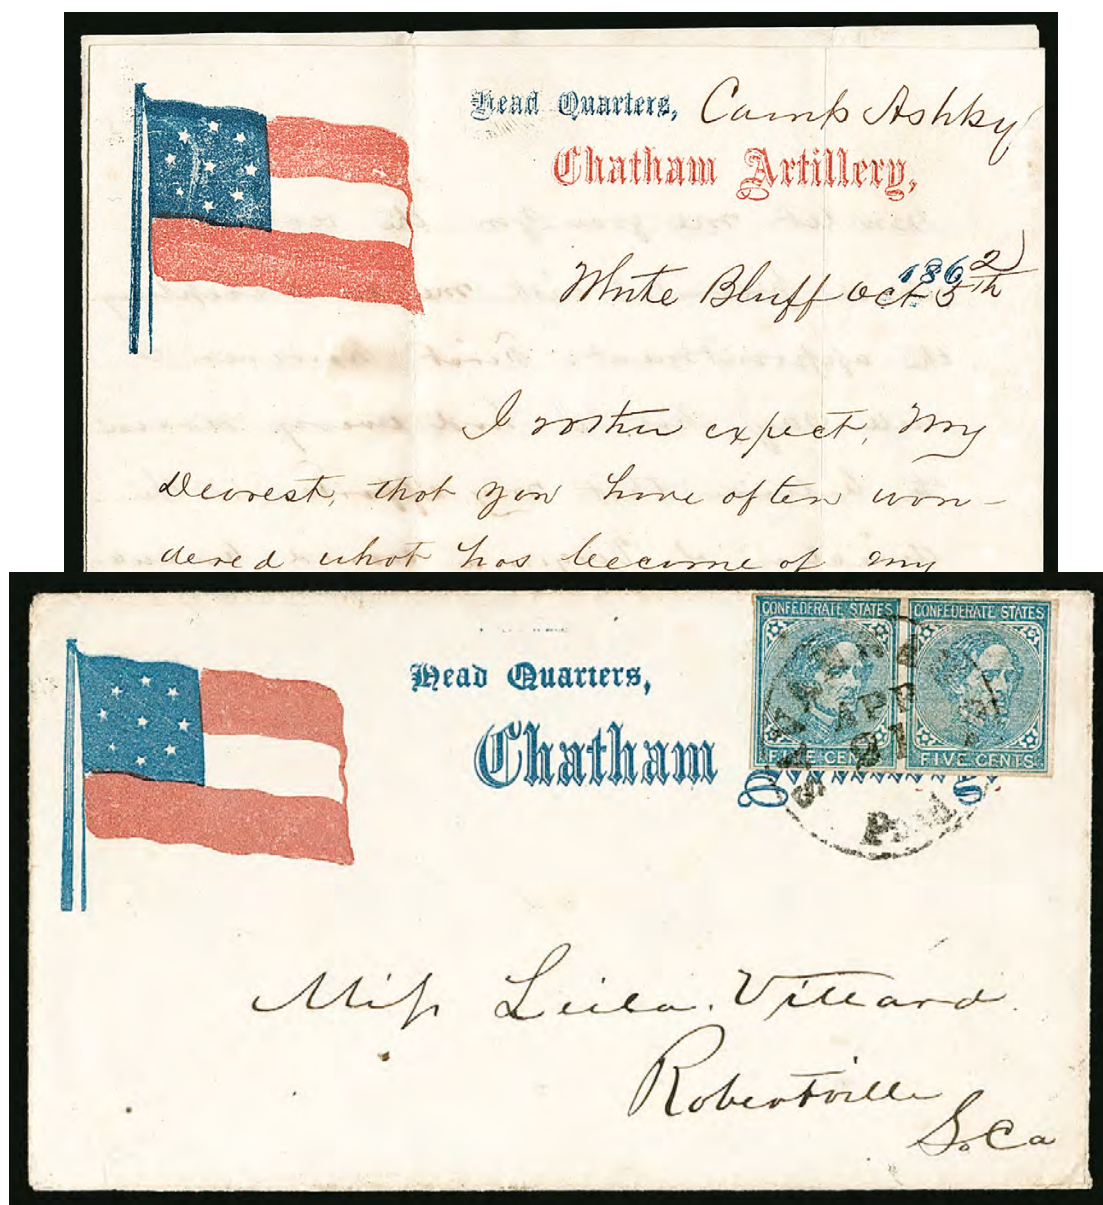 Head Quarters, Camp Ashby
Chatham Artillery,
1862
White Bluff Oct 5th
I rather expect, My
Dearest, that you have often won-
dered what has become of my
CONFEDERATE STATES
CONFEDERATE STATES
FIVE CENTS
FIVE CENTS
Head Quarters,
Chatham
APR
Paid
Miss Leila Villard
Robertville
So. Ca